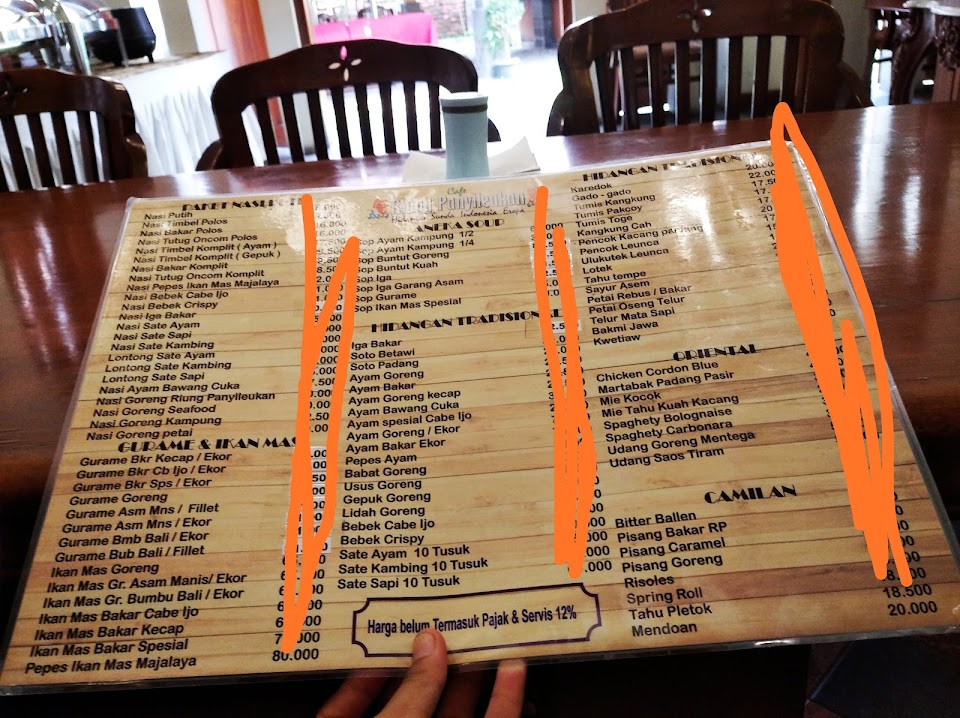 Cafe
Riung Panyileukan
Makanan Sunda Indonesia Eropa
PAKET NASI
Nasi Putih
Nasi Timbel Polos
Nasi Bakar Polos
Nasi Tutug Oncom Polos
Nasi Timbel Komplit ( Ayam )
Nasi Timbel Komplit ( Gepuk )
Nasi Bakar Komplit
Nasi Tutug Oncom Komplit
Nasi Pepes Ikan Mas Majalaya
Nasi Bebek Cabe Ijo
Nasi Bebek Crispy
Nasi Iga Bakar
Nasi Sate Ayam
Nasi Sate Sapi
Nasi Sate Kambing
Lontong Sate Ayam
Lontong Sate Kambing
Lontong Sate Sapi
Nasi Ayam Bawang Cuka
Nasi Goreng Riung Panyileukan
Nasi Goreng Seafood
Nasi Goreng Kampung
Nasi Goreng petai
GURAME & IKAN MAS
Gurame Bkr Kecap / Ekor
Gurame Bkr Cb Ijo / Ekor
Gurame Bkr Sps / Ekor
Gurame Goreng
Gurame Asm Mns / Fillet
Gurame Asm Mns / Ekor
Gurame Bmb Bali / Ekor
Gurame Bub Bali / Fillet
Ikan Mas Goreng
Ikan Mas Gr. Asam Manis/ Ekor
Ikan Mas Gr. Bumbu Bali / Ekor
Ikan Mas Bakar Cabe Ijo
Ikan Mas Bakar Kecap
Ikan Mas Bakar Spesial
Pepes Ikan Mas Majalaya 80.000
ANEKA SOUP
Sop Ayam Kampung 1/2
Sop Ayam Kampung 1/4
Sop Buntut Goreng
Sop Buntut Kuah
Sop Iga
Sop Iga Garang Asam
Sop Gurame
Sop Ikan Mas Spesial
HIDANGAN TRADISIONAL
Iga Bakar
Soto Betawi
Soto Padang
Ayam Goreng
Ayam Bakar
Ayam Goreng kecap
Ayam Bawang Cuka
Ayam spesial Cabe Ijo
Ayam Goreng / Ekor
Ayam Bakar Ekor
Pepes Ayam
Babat Goreng
Usus Goreng
Gepuk Goreng
Lidah Goreng
Bebek Cabe Ijo
Bebek Crispy
Sate Ayam 10 Tusuk
Sate Kambing 10 Tusuk
Sate Sapi 10 Tusuk
Harga belum Termasuk Pajak & Servis 12%
HIDANGAN TRADISION
Karedok
Gado - gado
Tumis Kangkung
Tumis Pakcoy
Tumis Toge
Kangkung Cah
Pencok Kacang panjang
Pencok Leunca
Ulukutek Leunca
Lotek
Tahu tempe
Sayur Asem
Petai Rebus / Bakar
Petai Oseng Telur
Telur Mata Sapi
Bakmi Jawa
Kwetiaw
ORIENTAL
Chicken Cordon Blue
Martabak Padang Pasir
Mie Kocok
Mie Tahu Kuah Kacang
Spaghety Bolognaise
Spaghety Carbonara
Udang Goreng Mentega
Udang Saos Tiram
CAMILAN
Bitter Ballen
Pisang Bakar RP
Pisang Caramel
Pisang Goreng
Risoles
Spring Roll
Tahu Pletok 18.500
Mendoan 20.000